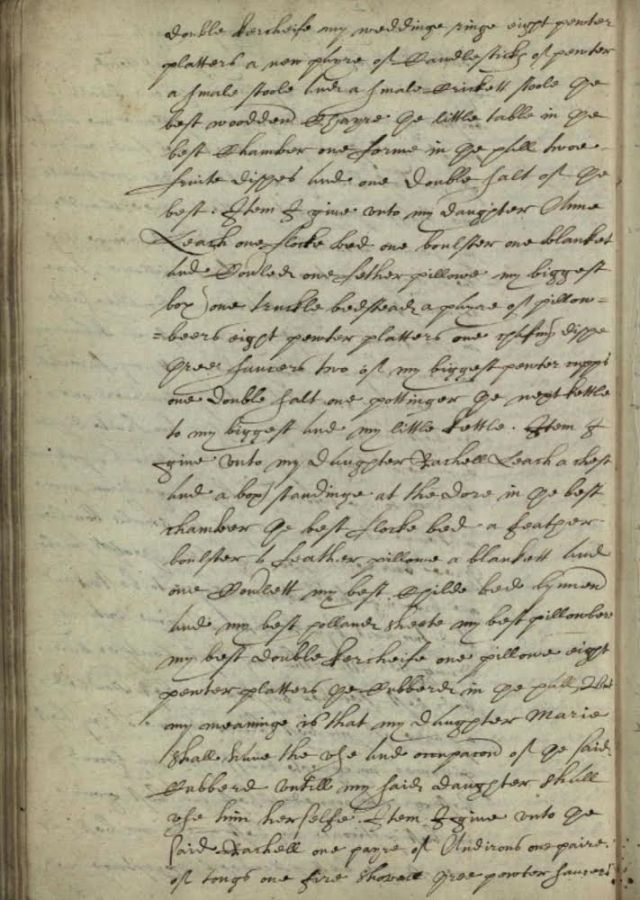 double kercheife my weddinge ringe eight pewter
platters a new payre of Candlesticks of pewter
a smale stoole and a smale Crickett stoole ye
best woodden Chayre ye little table in ye
best Chamber one forme in ye hall twoe
fruite dishes and one double salt of ye
best. Item I give unto my daughter Anne
Leach one flocke bed one boulster one blanket
and Coverled one fether pillowe my biggest
box one truckle bedstead a payre of pillow=
=beers eight pewter platters one dishe
three saucers two of my biggest pewter
one double salt one pottinger ye next kettle
to my biggest and my little kettle. Item I
give unto my daughter Rachell Leach a chest
and a box standinge at the dore in ye best
chamber ye best flocke bed a feather
boulster a feather pillowe a blankett and
one Coverlett my best Childe bed lynnen
and my best holland sheete my best pillowbere
my best double kercheife one pillowe eight
pewter platters ye Cubberd in ye hall,
my meaninge is that my daughter Marie
shall have the use and occupacon of ye said
Cubberd untill my said daughter shall
use him herselfe. Item I give unto ye
said Rachell one payre of Andirons one paire
of tongs one fire shovell three pewter saucers